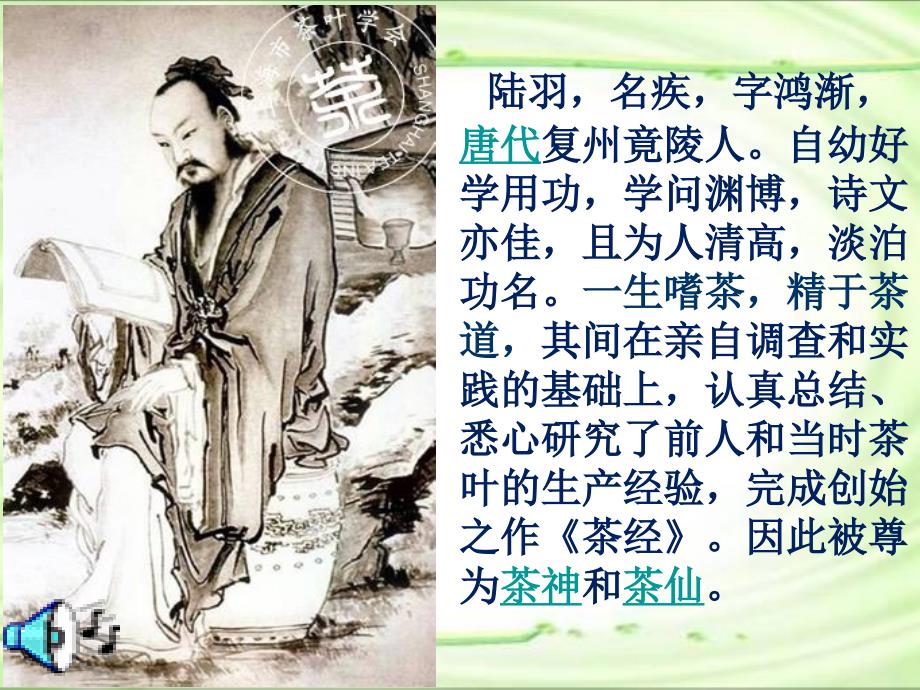 上海市茶叶学会
茶
SHANGHAI TEA INS
陆羽，名疾，字鸿渐，
唐代复州竟陵人。自幼好
学用功，学问渊博，诗文
亦佳，且为人清高，淡泊
功名。一生嗜茶，精于茶
道，其间在亲自调查和实
践的基础上，认真总结、
悉心研究了前人和当时茶
叶的生产经验，完成创始
之作《茶经》。因此被尊
为茶神和茶仙。